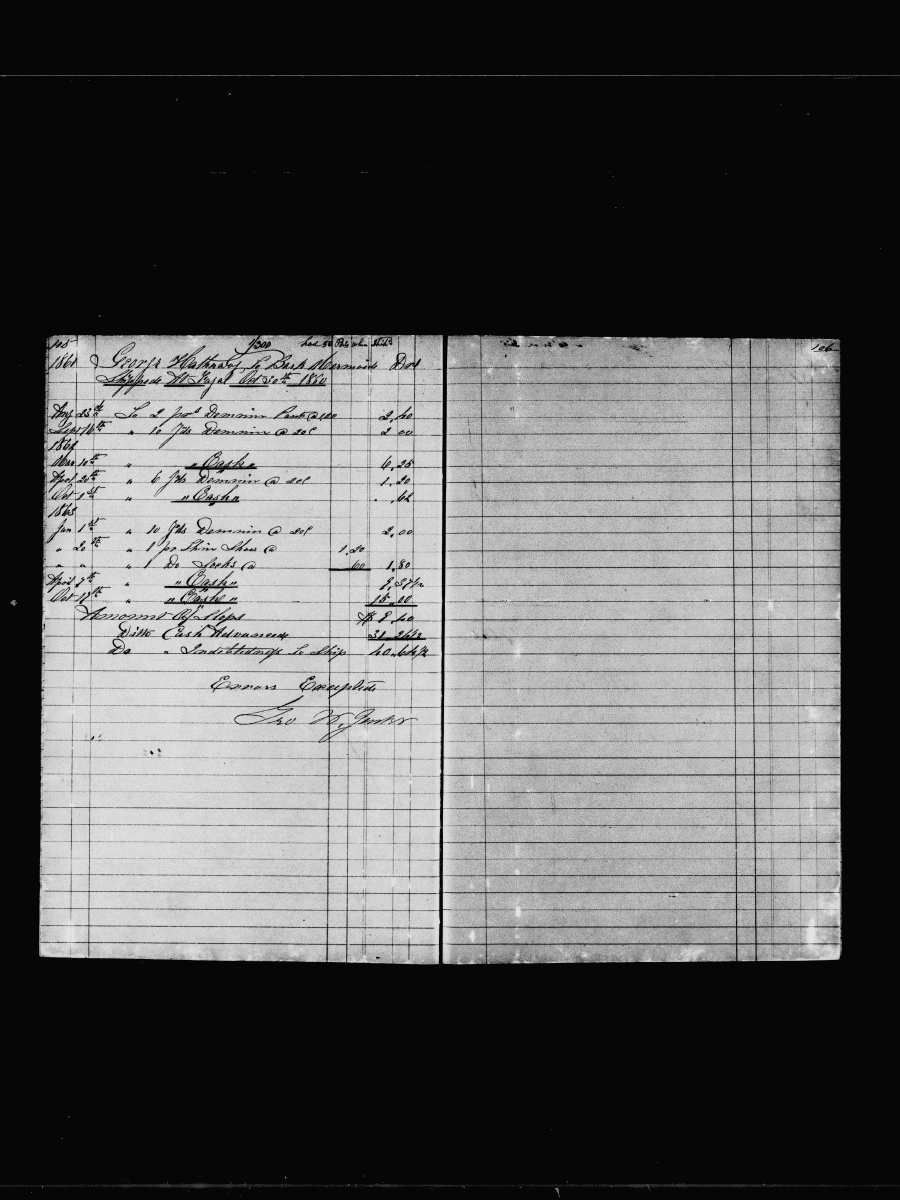 105
1/300 had 50 Dols when Shipd
1861 George Hathaway To Bark Mermaid Dr
Shipped At Fayal Oct 20th 1860
Aug 23d To 2 prs Demmin Pants @ 120 2.40
Sept 16th " 10 Yds Demmin @ 20c 2.00
1862
Mar 10th " " Cash " 6.25
April 20th " 6 Yds Demmin @ 20c 1.20
Oct 1st " " Cash " .62
1863
Jan 1st " 10 Yds Demmin @ 20c 2.00
" 20th " 1 pr Thin Shoes @ 1.20
" " " 1 Do Socks @ 60 1.80
April 7th " " Cash " 9.37 1/2
Oct 17th " " Cash " 15.00
Amount Of Slops $ 9.40
Ditto Cash Advanced 31.24 1/2
Do " Indebtedness To Ship 40.64 1/2
Errors Excepted
Geo W.
106